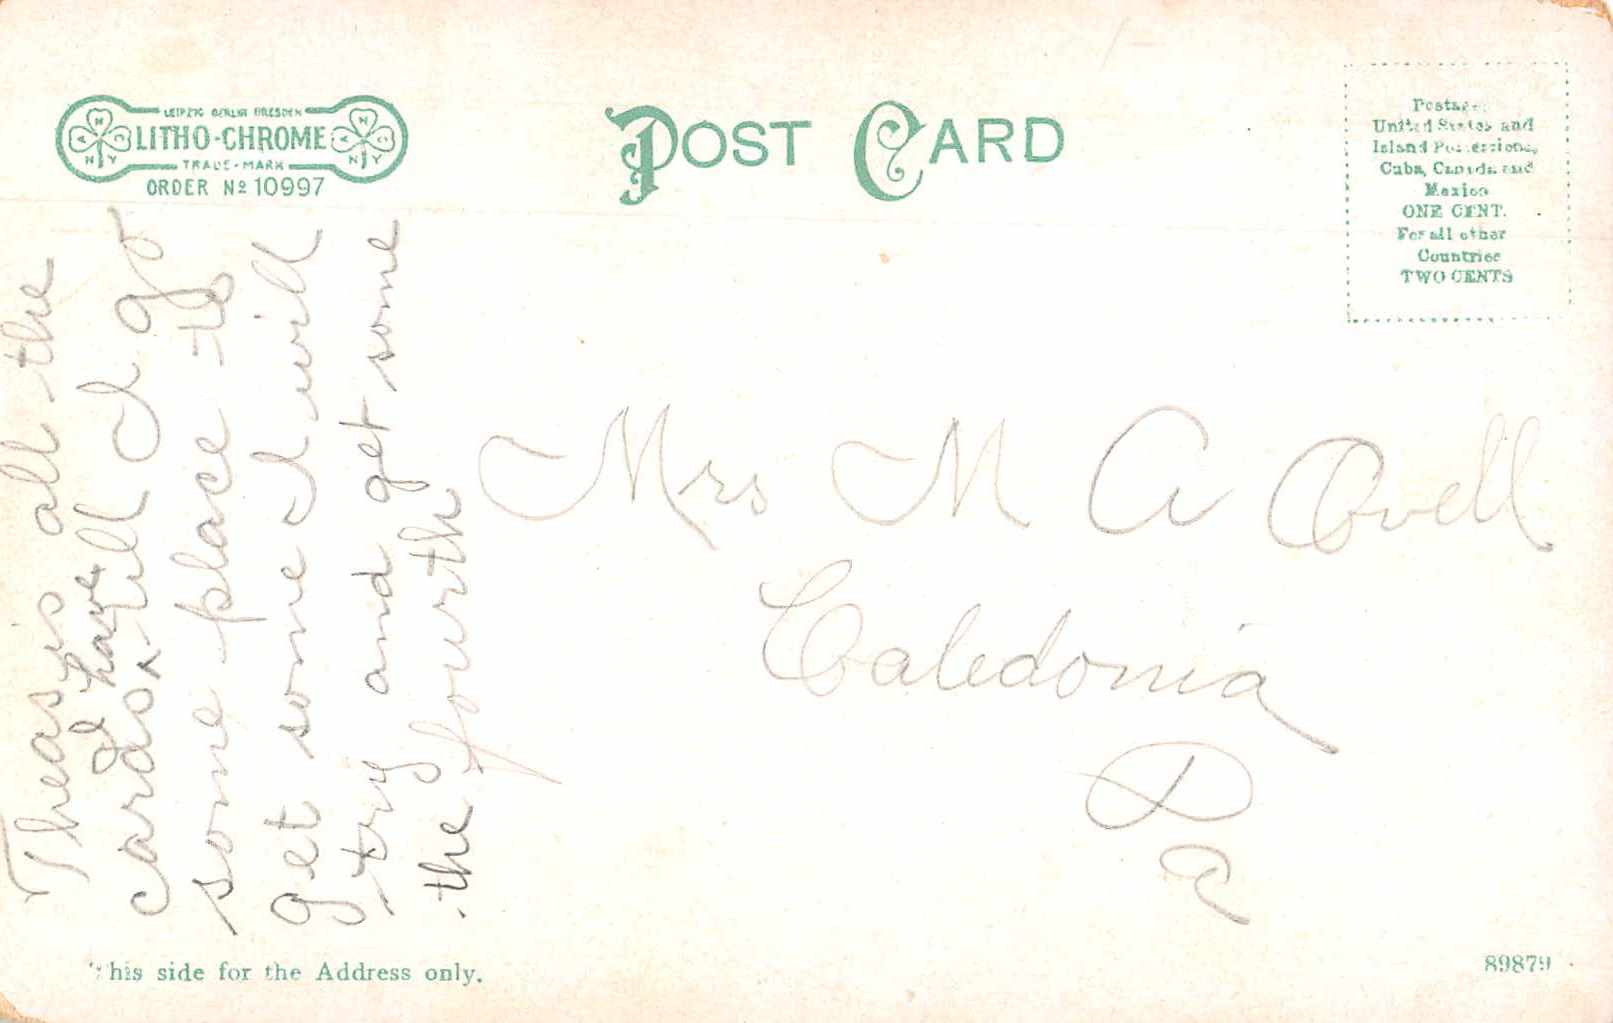 LEIPZIG BERLIN DRESDEN
LITHO-CHROME
TRADE-MARK
ORDER Nº 10997
A N C N Y
A N C N Y
POST CARD
Postage
United States and
Island Possessions,
Cuba, Canada and
Mexico
ONE CENT.
For all other
Countries
TWO CENTS
Theas is all the
I have
cards till I go
some place to
get some I will
try and get some
the fourth
Mrs M A Covell
Caledonia
Pa
This side for the Address only.
89879